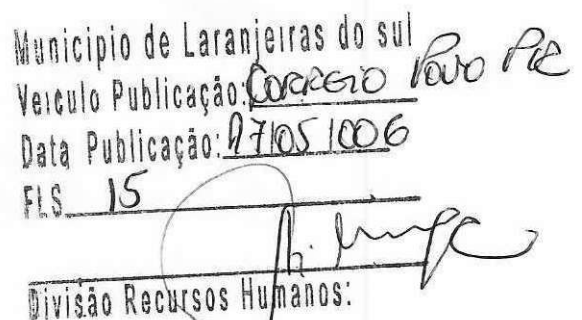 Municipio de Laranjeiras do sul
Veiculo Publicação: CORREIO POVO PR
Data Publicação: 17/05/006
FLS 15
Divisão Recursos Humanos: